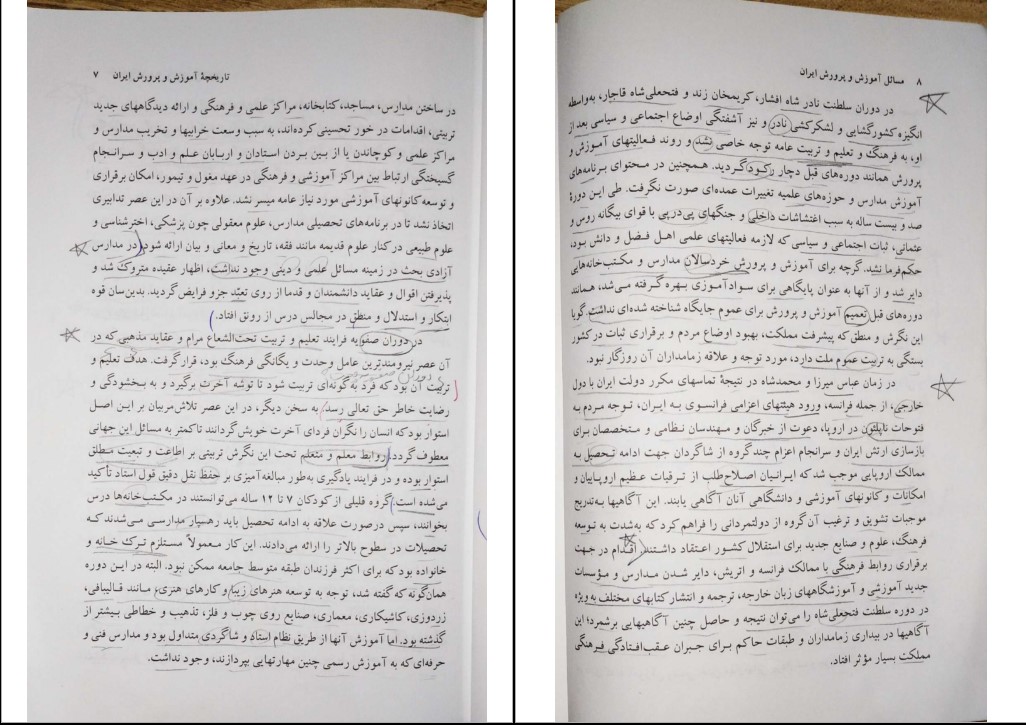 تاریخچهٔ آموزش و پرورش ایران ۷
در ساختن مدارس، مساجد، کتابخانه، مراکز علمی و فرهنگی و ارائه دیدگاههای جدید
تربیتی، اقدامات در خور تحسینی کرده‌اند، به سبب وسعت خرابیها و تخریب مدارس و
مراکز علمی و کوچاندن یا از بین بردن استادان و اربابان علم و ادب و سرانجام
گسیختگی ارتباط بین مراکز آموزشی و فرهنگی در عهد مغول و تیمور، امکان برقراری
و توسعه کانونهای آموزشی مورد نیاز عامه میسر نشد. علاوه بر آن در این عصر تدابیری
اتخاذ نشد تا در برنامه‌های تحصیلی مدارس، علوم معقولی چون پزشکی، اخترشناسی و
علوم طبیعی در کنار علوم قدیمه مانند فقه، تاریخ و معانی و بیان ارائه شود. در مدارس
آزادی بحث در زمینه مسائل علمی و دینی وجود نداشت، اظهار عقیده متروک شد و
پذیرفتن اقوال و عقاید دانشمندان و قدما از روی تعبّد جزو فرایض گردید. بدین‌سان قوه
ابتکار و استدلال و منطق در مجالس درس از رونق افتاد.
در دوران صفویه فرایند تعلیم و تربیت تحت‌الشعاع مرام و عقاید مذهبی که در
آن عصر نیرومندترین عامل وحدت و یگانگی فرهنگ بود، قرار گرفت. هدف تعلیم و
تربیت آن بود که فرد به گونه‌ای تربیت شود تا توشه آخرت برگیرد و به بخشودگی و
رضایت خاطر حق تعالی رسد. به سخن دیگر، در این عصر تلاش مربیان بر این اصل
استوار بود که انسان را نگران فردای آخرت خویش گردانند تا کمتر به مسائل این جهانی
معطوف گردد. روابط معلم و متعلم تحت این نگرش تربیتی بر اطاعت و تبعیت مطلق
استوار بوده و در فرایند یادگیری به‌طور مبالغه‌آمیزی بر حفظ نقل دقیق قول استاد تأکید
می‌شده است. گروه قلیلی از کودکان ۷ تا ۱۲ ساله می‌توانستند در مکتب‌خانه‌ها درس
بخوانند، سپس در صورت علاقه به ادامه تحصیل باید رهسپار مدارسی می‌شدند که
تحصیلات در سطوح بالاتر را ارائه می‌دادند. این کار معمولاً مستلزم ترک خانه و
خانواده بود که برای اکثر فرزندان طبقه متوسط جامعه ممکن نبود. البته در این دوره
همان‌گونه که گفته شد، توجه به توسعه هنرهای زیبا و کارهای هنری، مانند قالیبافی،
زردوزی، کاشیکاری، معماری، صنایع روی چوب و فلز، تذهیب و خطاطی بیشتر از
گذشته بود. اما آموزش آنها از طریق نظام استاد و شاگردی متداول بود و مدارس فنی و
حرفه‌ای که به آموزش رسمی چنین مهارتهایی بپردازند، وجود نداشت.
۸ مسائل آموزش و پرورش ایران
در دوران سلطنت نادر شاه افشار، کریمخان زند و فتحعلی‌شاه قاجار، به‌واسطه
انگیزه کشورگشایی و لشکرکشی نادر و نیز آشفتگی اوضاع اجتماعی و سیاسی بعد از
او، به فرهنگ و تعلیم و تربیت عامه توجه خاصی نشد و روند فعالیتهای آموزش و
پرورش همانند دوره‌های قبل دچار رکود گردید. همچنین در محتوای برنامه‌های
آموزش مدارس و حوزه‌های علمیه تغییرات عمده‌ای صورت نگرفت. طی این دورهٔ
صد و بیست ساله به سبب اغتشاشات داخلی و جنگهای پی‌درپی با قوای بیگانه روس و
عثمانی، ثبات اجتماعی و سیاسی که لازمه فعالیتهای علمی اهل فضل و دانش بود،
حکم‌فرما نشد. گرچه برای آموزش و پرورش خردسالان مدارس و مکتب‌خانه‌هایی
دایر شد و از آنها به عنوان پایگاهی برای سوادآموزی بهره گرفته می‌شد، همانند
دوره‌های قبل تعمیم آموزش و پرورش برای عموم جایگاه شناخته شده‌ای نداشت. گویا
این نگرش و منطق که پیشرفت مملکت، بهبود اوضاع مردم و برقراری ثبات در کشور
بستگی به تربیت عموم ملت دارد، مورد توجه و علاقه زمامداران آن روزگار نبود.
در زمان عباس میرزا و محمدشاه در نتیجهٔ تماسهای مکرر دولت ایران با دول
خارجی، از جمله فرانسه، ورود هیئتهای اعزامی فرانسوی به ایران، توجه مردم به
فتوحات ناپلئون در اروپا، دعوت از خبرگان و مهندسان نظامی و متخصصان برای
بازسازی ارتش ایران و سرانجام اعزام چند گروه از شاگردان جهت ادامه تحصیل به
ممالک اروپایی موجب شد که ایرانیان اصلاح‌طلب از ترقیات عظیم اروپاییان و
امکانات و کانونهای آموزشی و دانشگاهی آنان آگاهی یابند. این آگاهیها به‌تدریج
موجبات تشویق و ترغیب آن گروه از دولتمردانی را فراهم کرد که به‌شدت به توسعه
فرهنگ، علوم و صنایع جدید برای استقلال کشور اعتقاد داشتند. اقدام در جهت
برقراری روابط فرهنگی با ممالک فرانسه و اتریش، دایر شدن مدارس و مؤسسات
جدید آموزشی و آموزشگاههای زبان خارجه، ترجمه و انتشار کتابهای مختلف به ویژه
در دوره سلطنت فتحعلی‌شاه را می‌توان نتیجه و حاصل چنین آگاهیهایی برشمرد؛ این
آگاهیها در بیداری زمامداران و طبقات حاکم برای جبران عقب‌افتادگی فرهنگی
مملکت بسیار مؤثر افتاد.